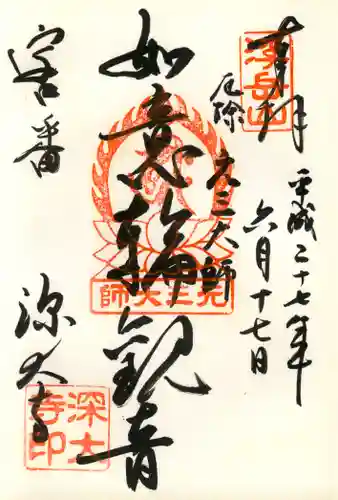 奉拝
平成二十七年
六月十七日
厄除
元三大師
如意輪観音
客番
深大寺
浮岳山
元三大師
深大寺印